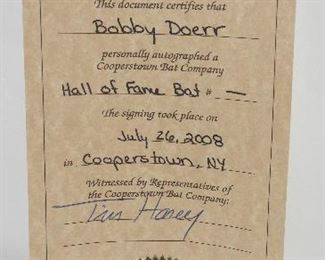 This document certifies that
Bobby Doerr
personally autographed a
Cooperstown Bat Company
Hall of Fame Bat # —
The signing took place on
July 26, 2008
in Cooperstown, NY
Witnessed by Representatives of
the Cooperstown Bat Company:
Tim